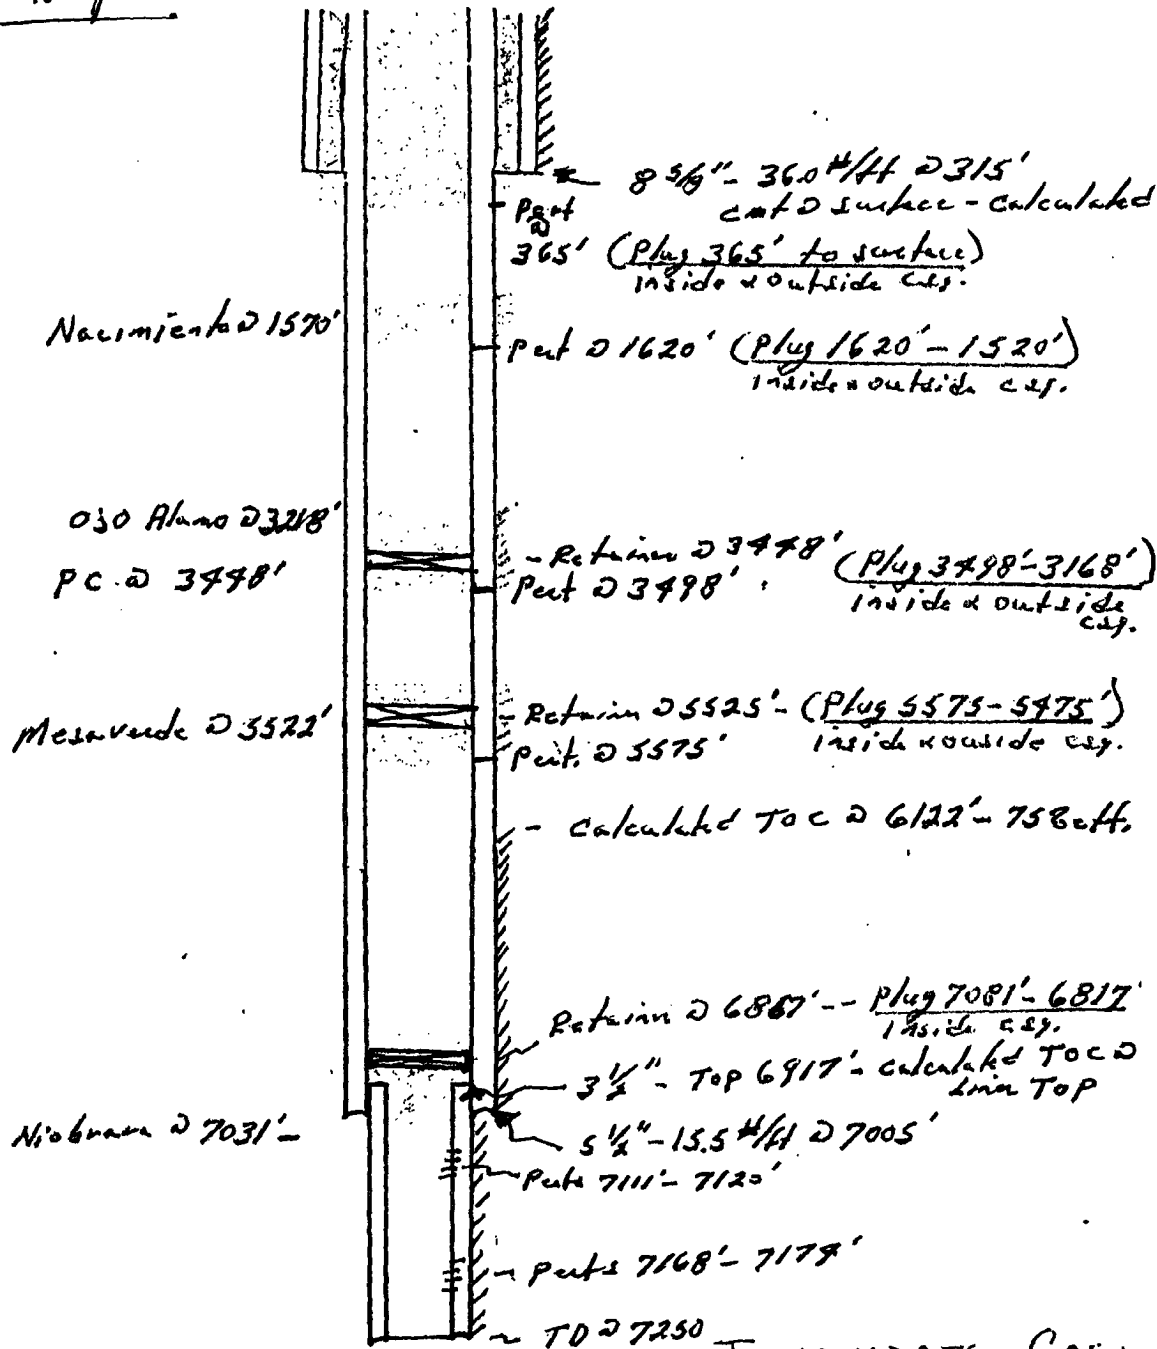 8 5/8" - 36.0 #/ft @ 315'
cmt @ surface - Calculated
Perf
@
365' (Plug 365' to surface)
inside & outside csg.
Nacimiento @ 1570'
Perf @ 1620' (Plug 1620' - 1520')
inside & outside csg.
Ojo Alamo @ 3218'
PC @ 3448'
- Retainer @ 3448' (Plug 3498' - 3168')
Perf @ 3498'
inside & outside
csg.
Mesaverde @ 5522'
Retainer @ 5525' - (Plug 5575 - 5475')
Perf. @ 5575'
inside & ouside csg.
- Calculated TOC @ 6122' - 75% eff.
Retainer @ 6867' -- Plug 7081' - 6817'
inside csg.
3 1/2" - TOP 6917' - Calculated TOC @
Liner TOP
Niobrara @ 7031' -
5 1/2" - 15.5 #/ft @ 7005'
Perfs 7111' - 7120'
- Perfs 7168' - 7174'
~ TD @ 7250